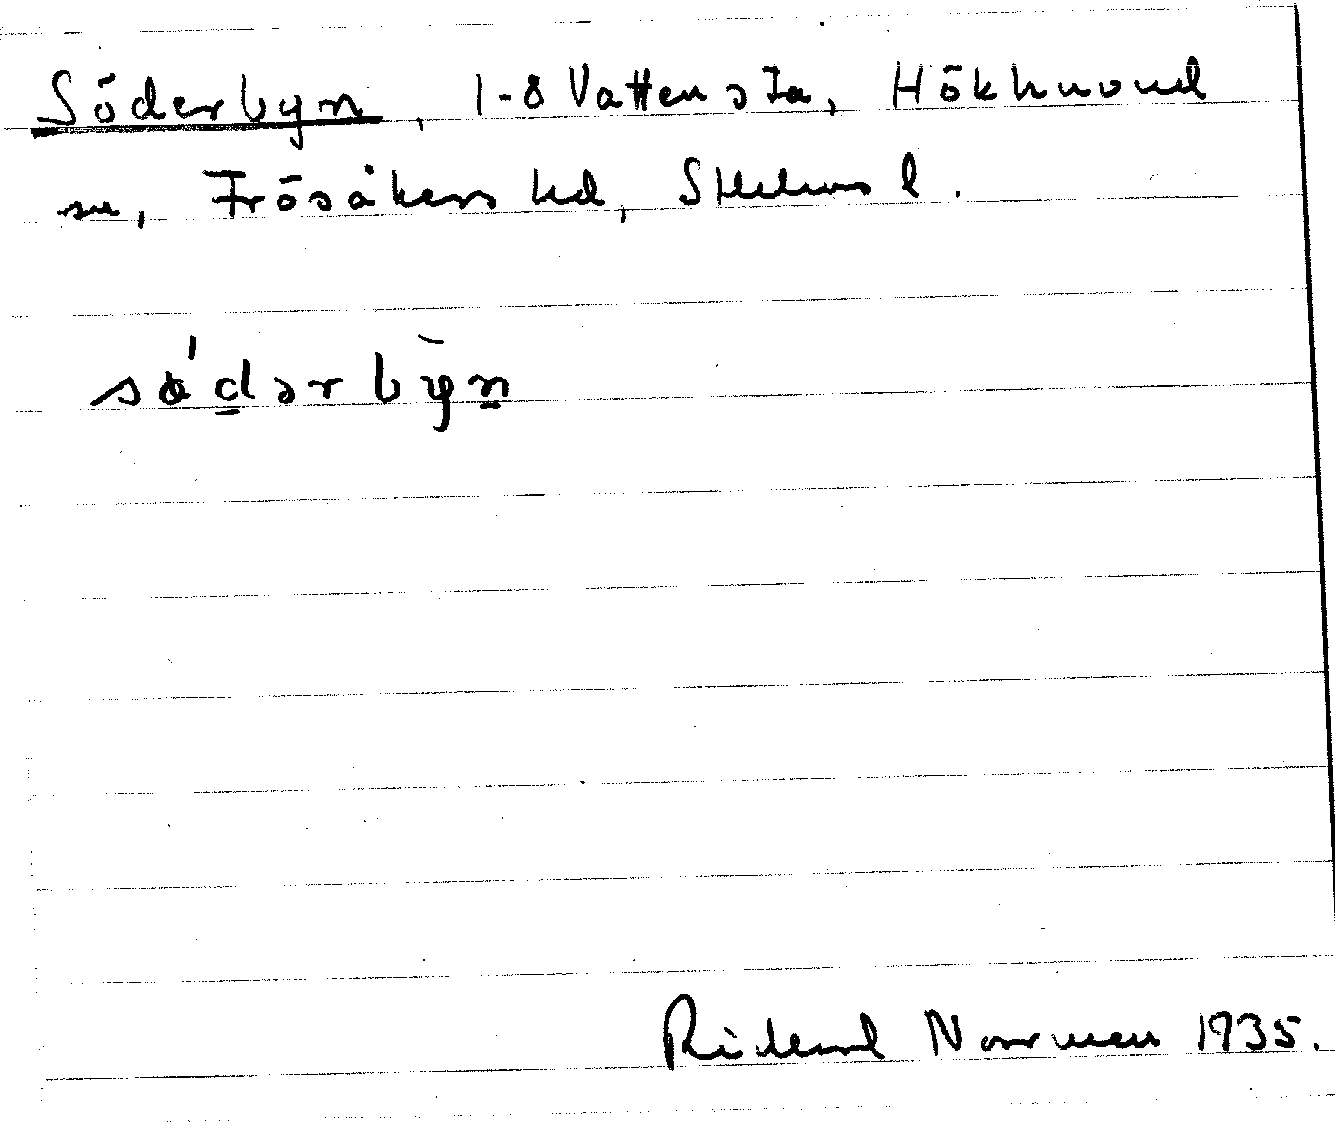 Söderbyn, 1-8 Vattensta, Hökhuvud
sn, Frösåkers hd, Sthlms l.
sö́dərbȳn
Rickard Norrman 1935.